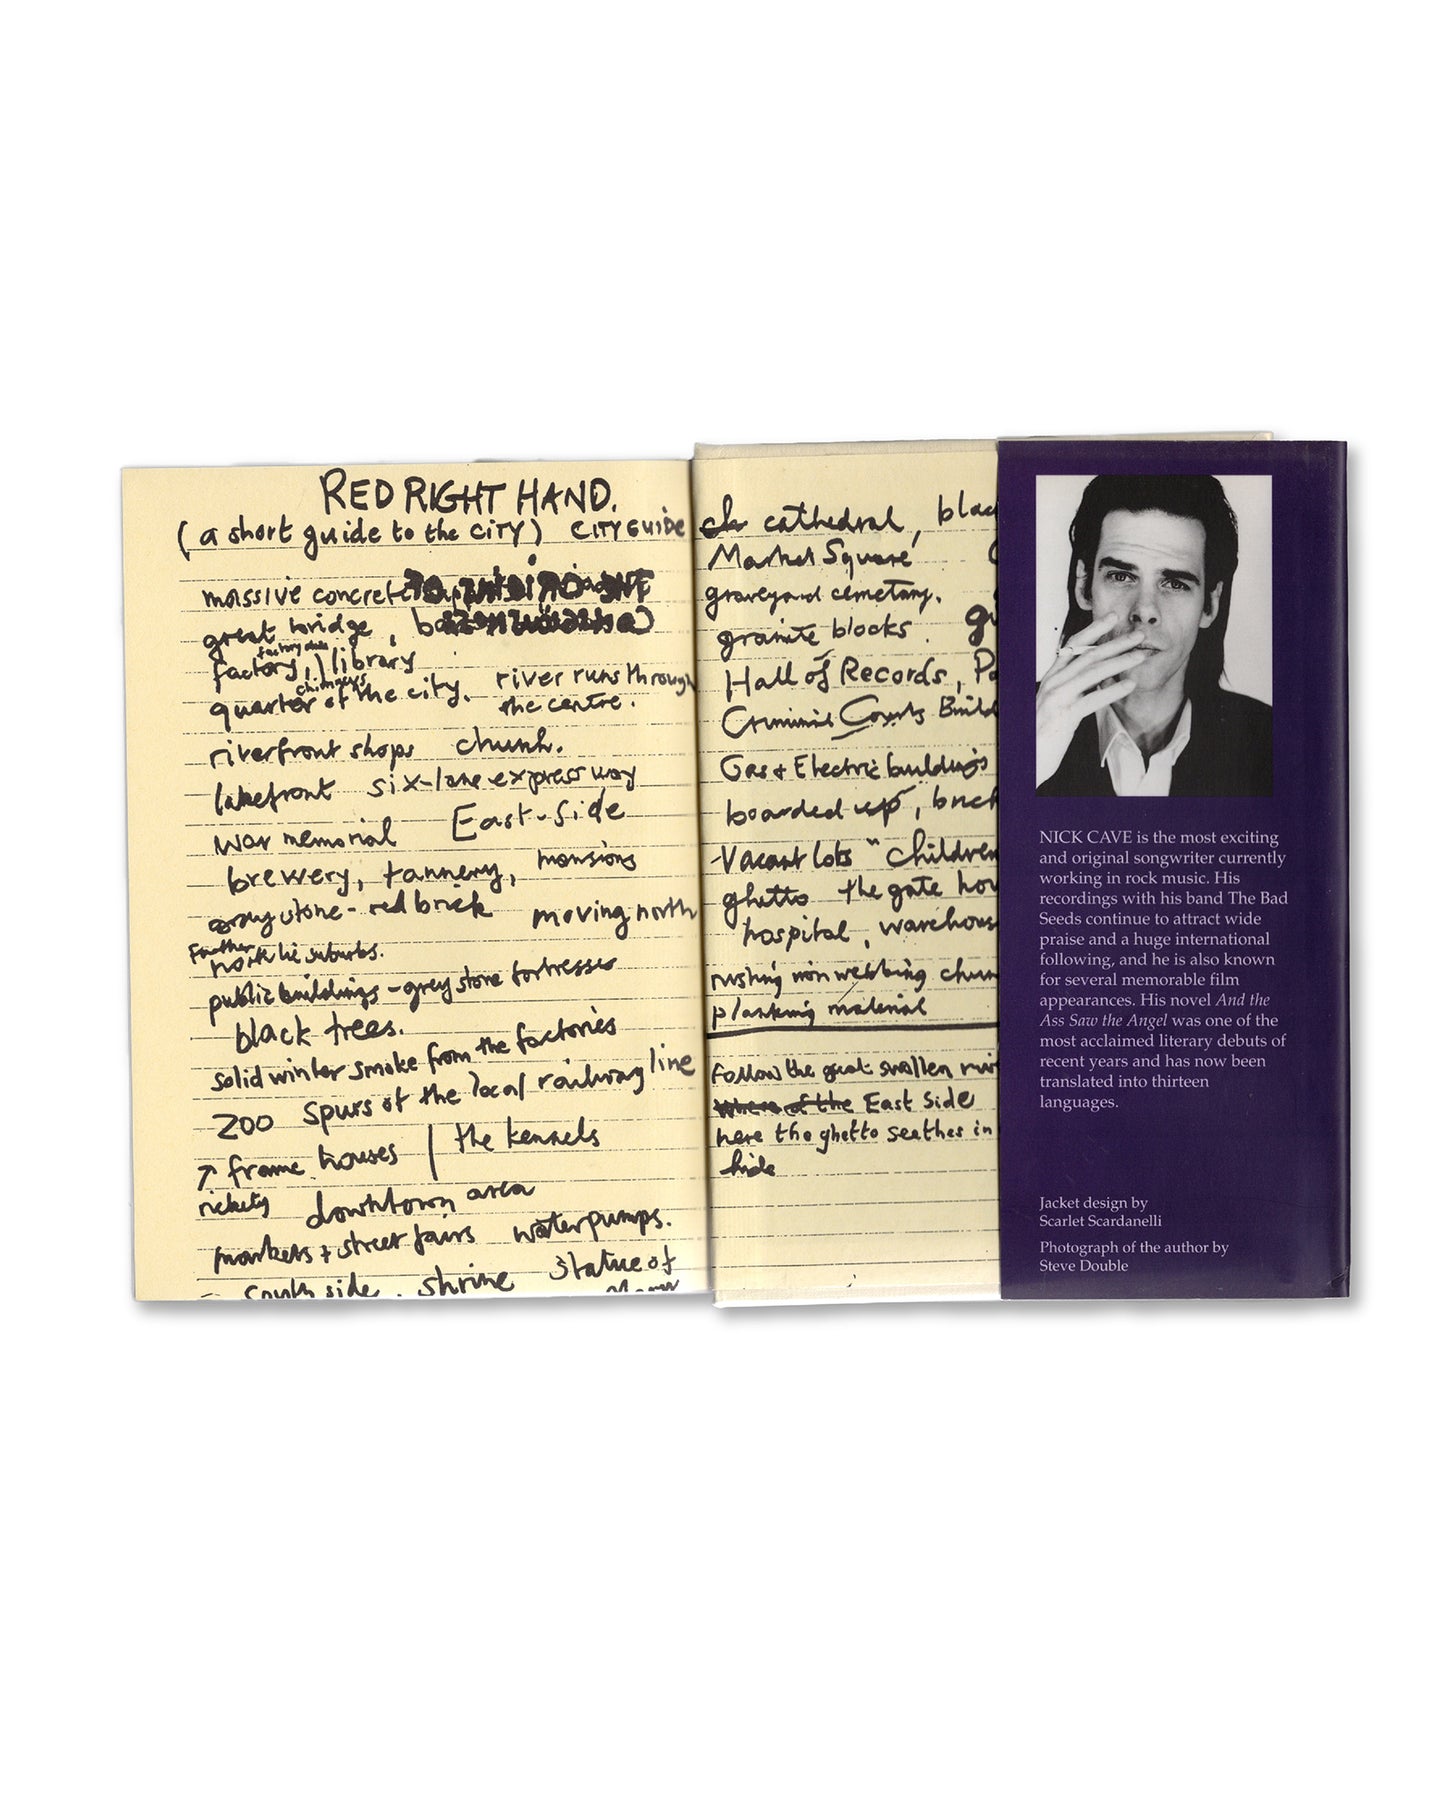 RED RIGHT HAND.
(a short guide to the CITY) CITY GUIDE
massive concrete
great bridge,
factory, library
chimneys
quarter of the city. river runs through
the centre.
riverfront shops church.
lakefront six-lane expressway
war memorial East-Side
brewery, tannery, mansions
greystone - red brick moving north
Farther
north lie suburbs.
public buildings - grey stone fortresses
black trees.
solid winter smoke from the factories
ZOO spurs of the local railway line
↑ frame houses | the kennels
rickety downtown area
markets + street fairs water pumps.
South side. shrine Statue of
cathedral, blac
Market Square
graveyard cemetary.
granite blocks.
Hall of Records, Po
Criminal Courts Build
Gas + Electric buildings
boarded up, brick
-Vacant lots "children
ghetto the gate hou
hospital, warehous
Follow the great swollen riv
Where of the East Side
here the ghetto seethes in
hide
NICK CAVE is the most exciting
and original songwriter currently
working in rock music. His
recordings with his band The Bad
Seeds continue to attract wide
praise and a huge international
following, and he is also known
for several memorable film
appearances. His novel And the
Ass Saw the Angel was one of the
most acclaimed literary debuts of
recent years and has now been
translated into thirteen
languages.
Jacket design by
Scarlet Scardanelli
Photograph of the author by
Steve Double